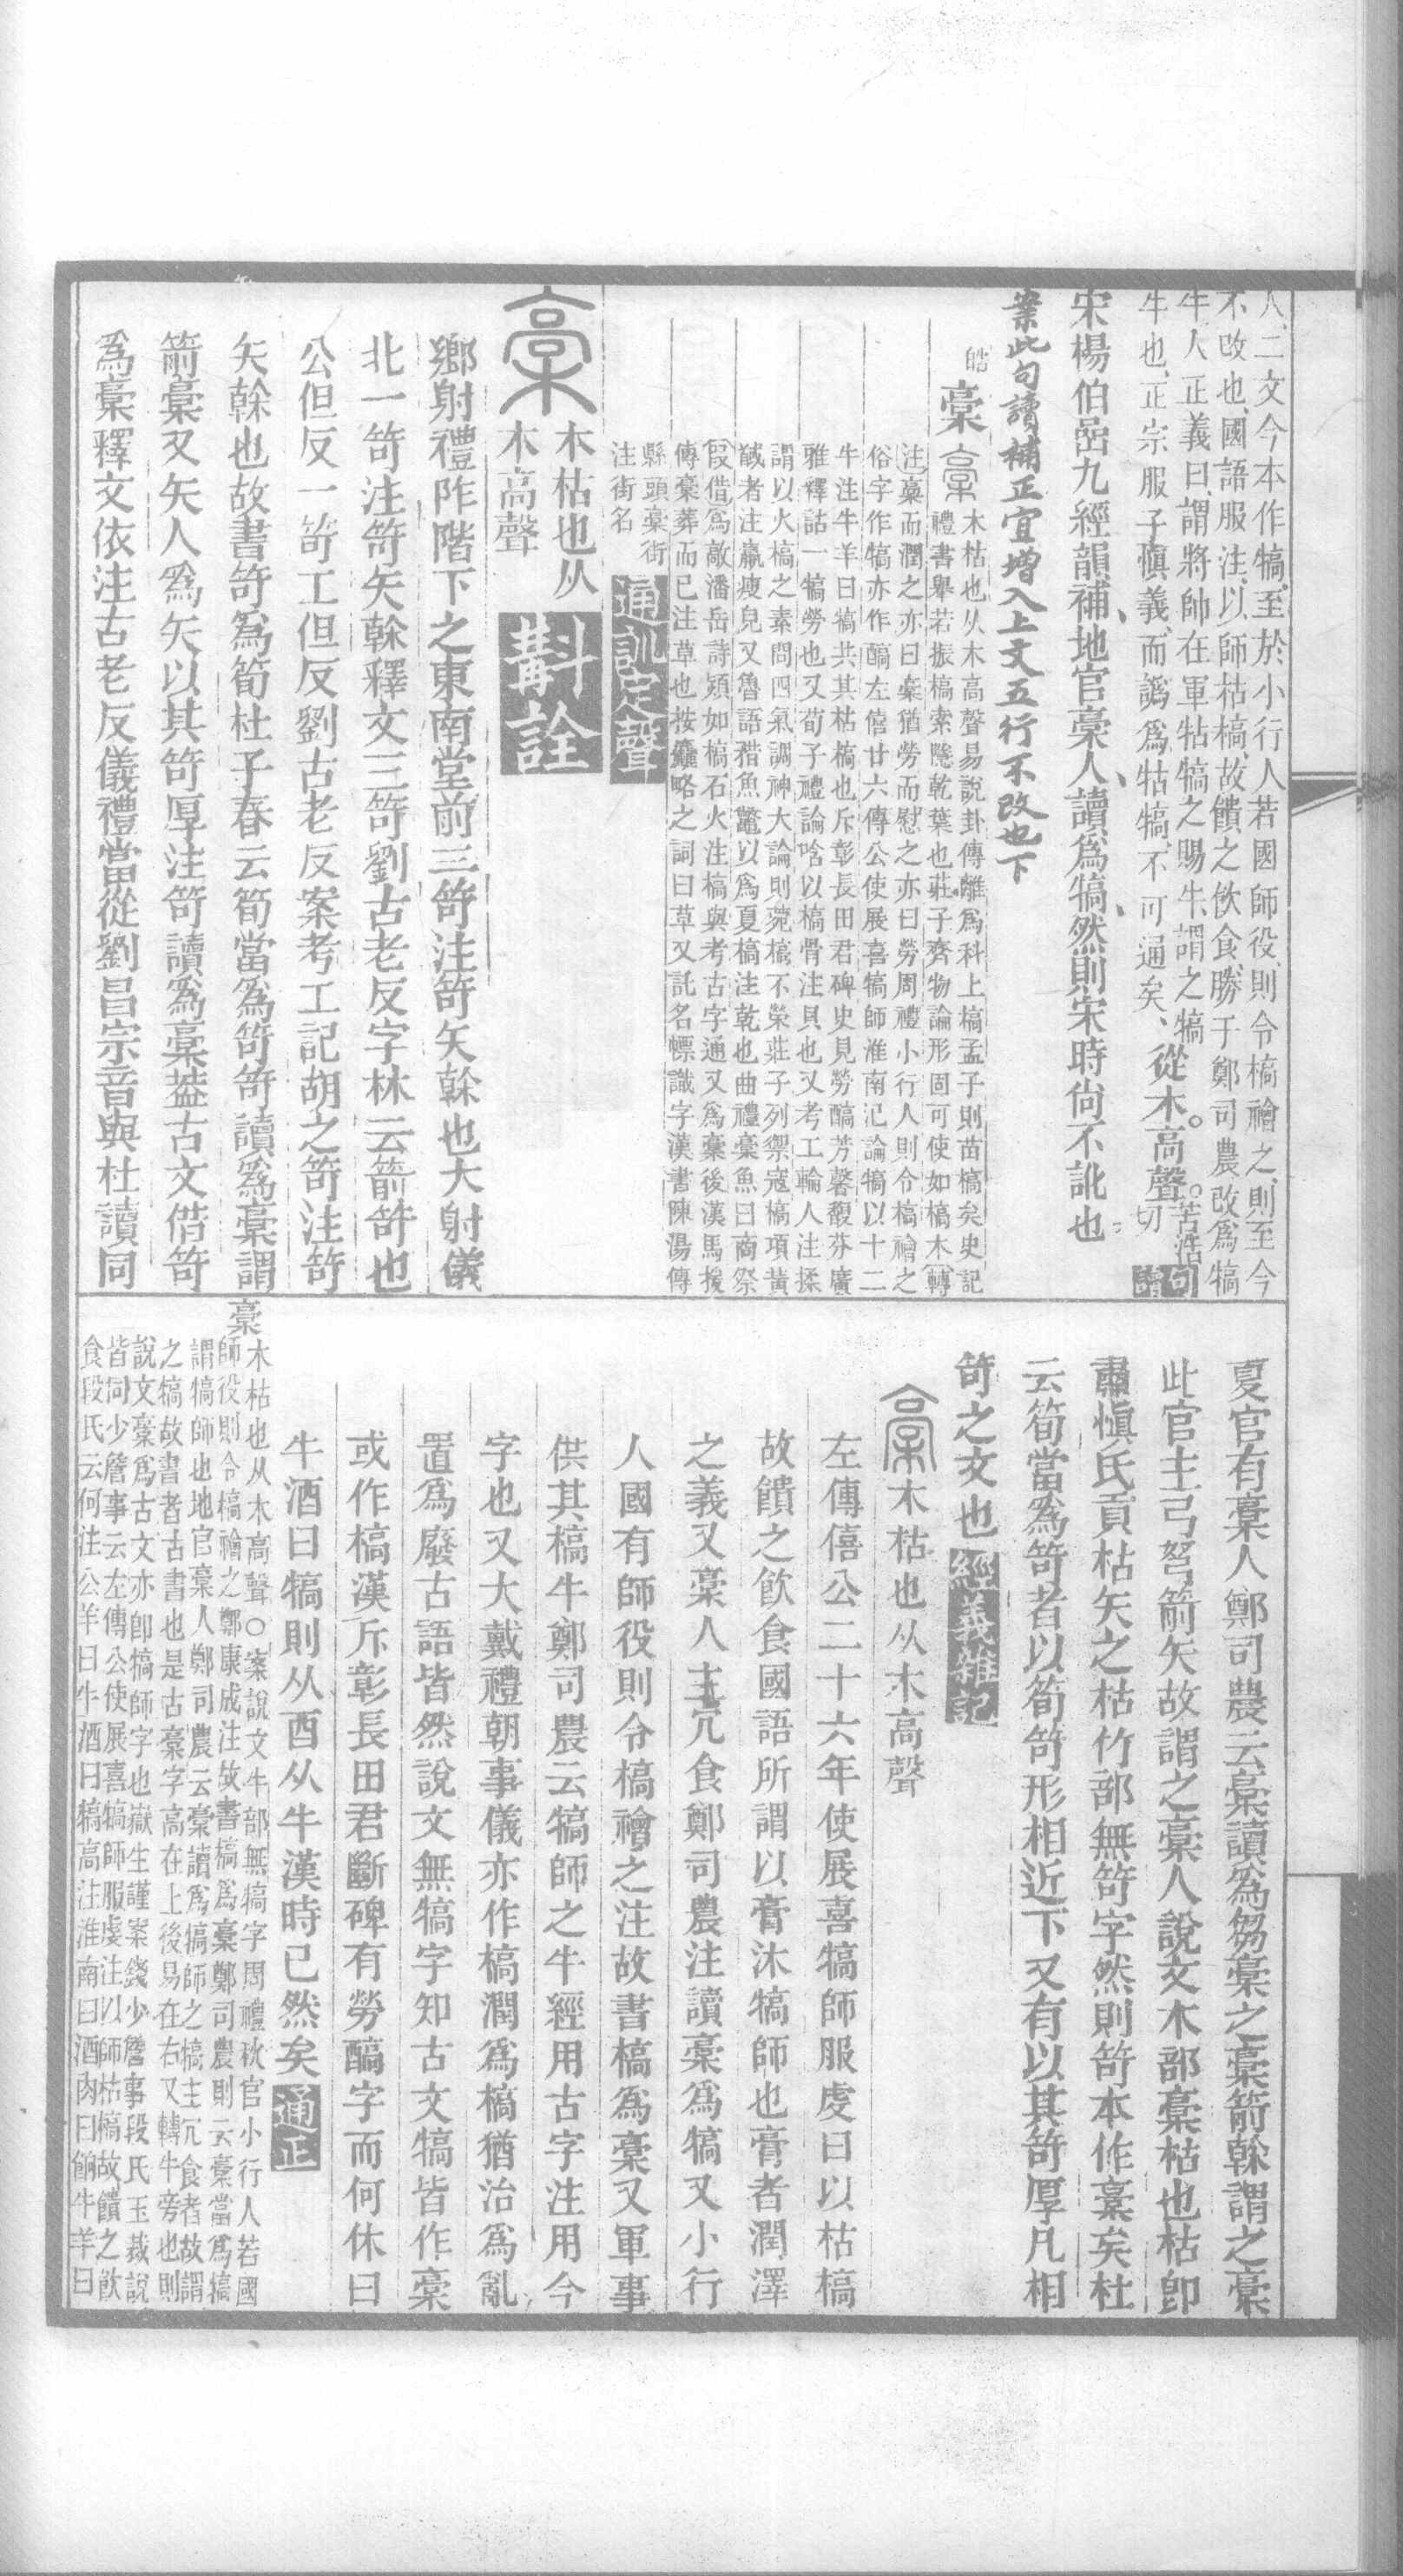 人二文今本作犒至於小行人若國師役則令槁禬之則至今
不改也國語服注以師枯槁故饋之飲食勝于鄭司農改爲犒
牛人正義曰謂將帥在軍枯犒之賜牛謂之犒。從木高聲。苦浩
牛也正宗服子愼義而譌爲牯犒不可通矣、切
句讀
宋楊伯嵒九經韻補地官槀人讀爲犒然則宋時尙不訛也
案此句讀補正宜增入上文五行不改也下
皓
槀 木枯也从木高聲易說卦傳離爲科上槁孟子則苗槁矣史記
禮書舉若振槁索隱乾葉也莊子齊物論形固可使如槁木轉
注槀而潤之亦曰槀猶勞而慰之亦曰勞周禮小行人則令槁禬之
俗字作犒亦作醕左僖廿六傳公使展喜犒師淮南氾論犒以十二
牛注牛羊曰犒共其枯槁也斥彰長田君碑史見勞醕芳馨馥芬廣
雅釋詁一犒勞也又荀子禮論唅以槁骨注貝也又考工輪人注揉
謂以火槁之素問四氣調神大論則菀槁不榮莊子列禦寇槁項黃
馘者注羸瘦皃又魯語矠魚鼈以爲夏槁注乾也曲禮槀魚曰商祭
假借爲敲潘岳詩熲如槁石火注槁與考古字通又爲槀後漢馬援
傳槀葬而已注草也按麤略之詞曰草又託名幖識字漢書陳湯傳
縣頭槀街
注街名 通訓定聲
木枯也从
木高聲 斠詮
鄉射禮阼階下之東南堂前三笴注笴矢榦也大射儀
北一笴注笴矢榦釋文三笴劉古老反字林云箭笴也
公但反一笴工但反劉古老反案考工記胡之笴注笴
矢榦也故書笴爲筍杜子春云筍當爲笴笴讀爲槀謂
箭槀又矢人爲矢以其笴厚注笴讀爲槀葢古文借笴
爲槀釋文依注古老反儀禮當從劉昌宗音與杜讀同
夏官有槀人鄭司農云槀讀爲芻槀之槀箭榦謂之槀
此官主弓弩箭矢故謂之槀人說文木部槀枯也枯卽
肅愼氏貢枯矢之枯竹部無笴字然則笴本作槀矣杜
云筍當爲笴者以筍笴形相近下又有以其笴厚凡相
笴之文也 經義雜記
木枯也从木高聲
左傳僖公二十六年使展喜犒師服虔曰以枯槁
故饋之飲食國語所謂以膏沐犒師也膏者潤澤
之義又槀人主宂食鄭司農注讀槀爲犒又小行
人國有師役則令槁禬之注故書槁爲槀又軍事
供其槁牛鄭司農云犒師之牛經用古字注用今
字也又大戴禮朝事儀亦作槁潤爲槁猶治爲亂
置爲廢古語皆然說文無犒字知古文犒皆作槀
或作槁漢斥彰長田君斷碑有勞醕字而何休曰
牛酒曰犒則从酉从牛漢時已然矣 通正
槀
木枯也从木高聲○案說文牛部無犒字周禮秋官小行人若國
師役則令槁禬之鄭康成注故書槁爲槀鄭司農則云槀當爲犒
謂犒師也地官槀人鄭司農云槀讀爲犒師之犒主宂食者故謂
之犒故書者古書也是古槀字高在上後易在右又轉牛旁也則
說文槀爲古文亦卽犒師字也嶽生謹案錢少詹事段氏玉裁說
皆同少詹事云左傳公使展喜犒師服虔注以師枯槁故饋之飲
食段氏云何注公羊曰牛酒曰犒高注淮南曰酒肉曰餉牛羊曰